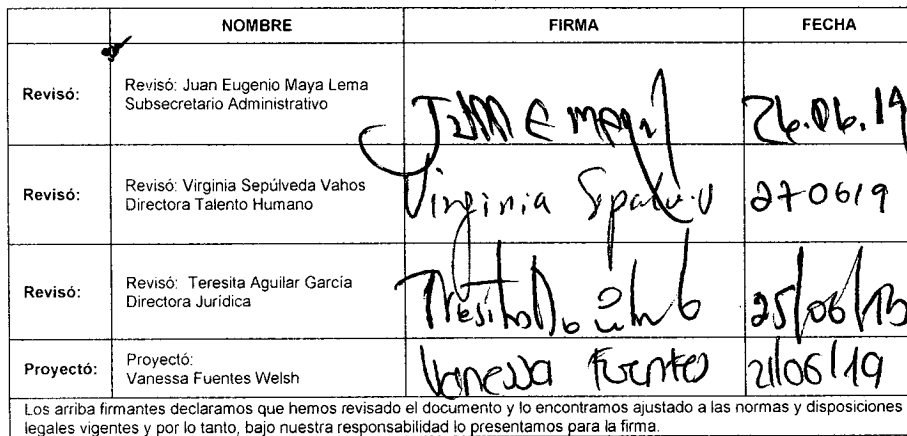 NOMBRE FIRMA FECHA
Revisó: Revisó: Juan Eugenio Maya Lema
Subsecretario Administrativo
26.06.19
Revisó: Revisó: Virginia Sepúlveda Vahos
Directora Talento Humano
Virginia
270619
Revisó: Revisó: Teresita Aguilar García
Directora Jurídica
25/06/
Proyectó: Proyectó:
Vanessa Fuentes Welsh
Vanessa Fuentes 21/06/19
Los arriba firmantes declaramos que hemos revisado el documento y lo encontramos ajustado a las normas y disposiciones
legales vigentes y por lo tanto, bajo nuestra responsabilidad lo presentamos para la firma.